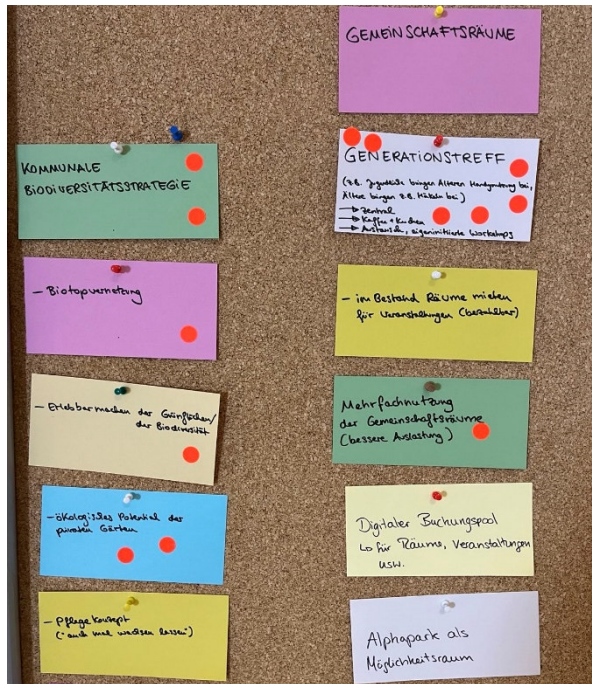 KOMMUNALE
BIODIVERSITÄTSSTRATEGIE
– Biotopvernetzung
– Erlebbarmachen der Grünflächen/
der Biodiversität
– ökologisches Potential der
privaten Gärten
– Pflegekonzept
("auch mal wachsen lassen")
GEMEINSCHAFTSRÄUME
GENERATIONSTREFF
(z.B. Jugendliche bringen Älteren Handynutzung bei,
Ältere bringen z.B. Häkeln bei)
→ Zentral
→ Kaffee + Kuchen
→ Austausch, eigeninitiierte Workshops
– im Bestand Räume mieten
für Veranstaltungen (bezahlbar)
Mehrfachnutzung
der Gemeinschaftsräume
(bessere Auslastung)
Digitaler Buchungspool
↳ für Räume, Veranstaltungen
usw.
Alphapark als
Möglichkeitsraum